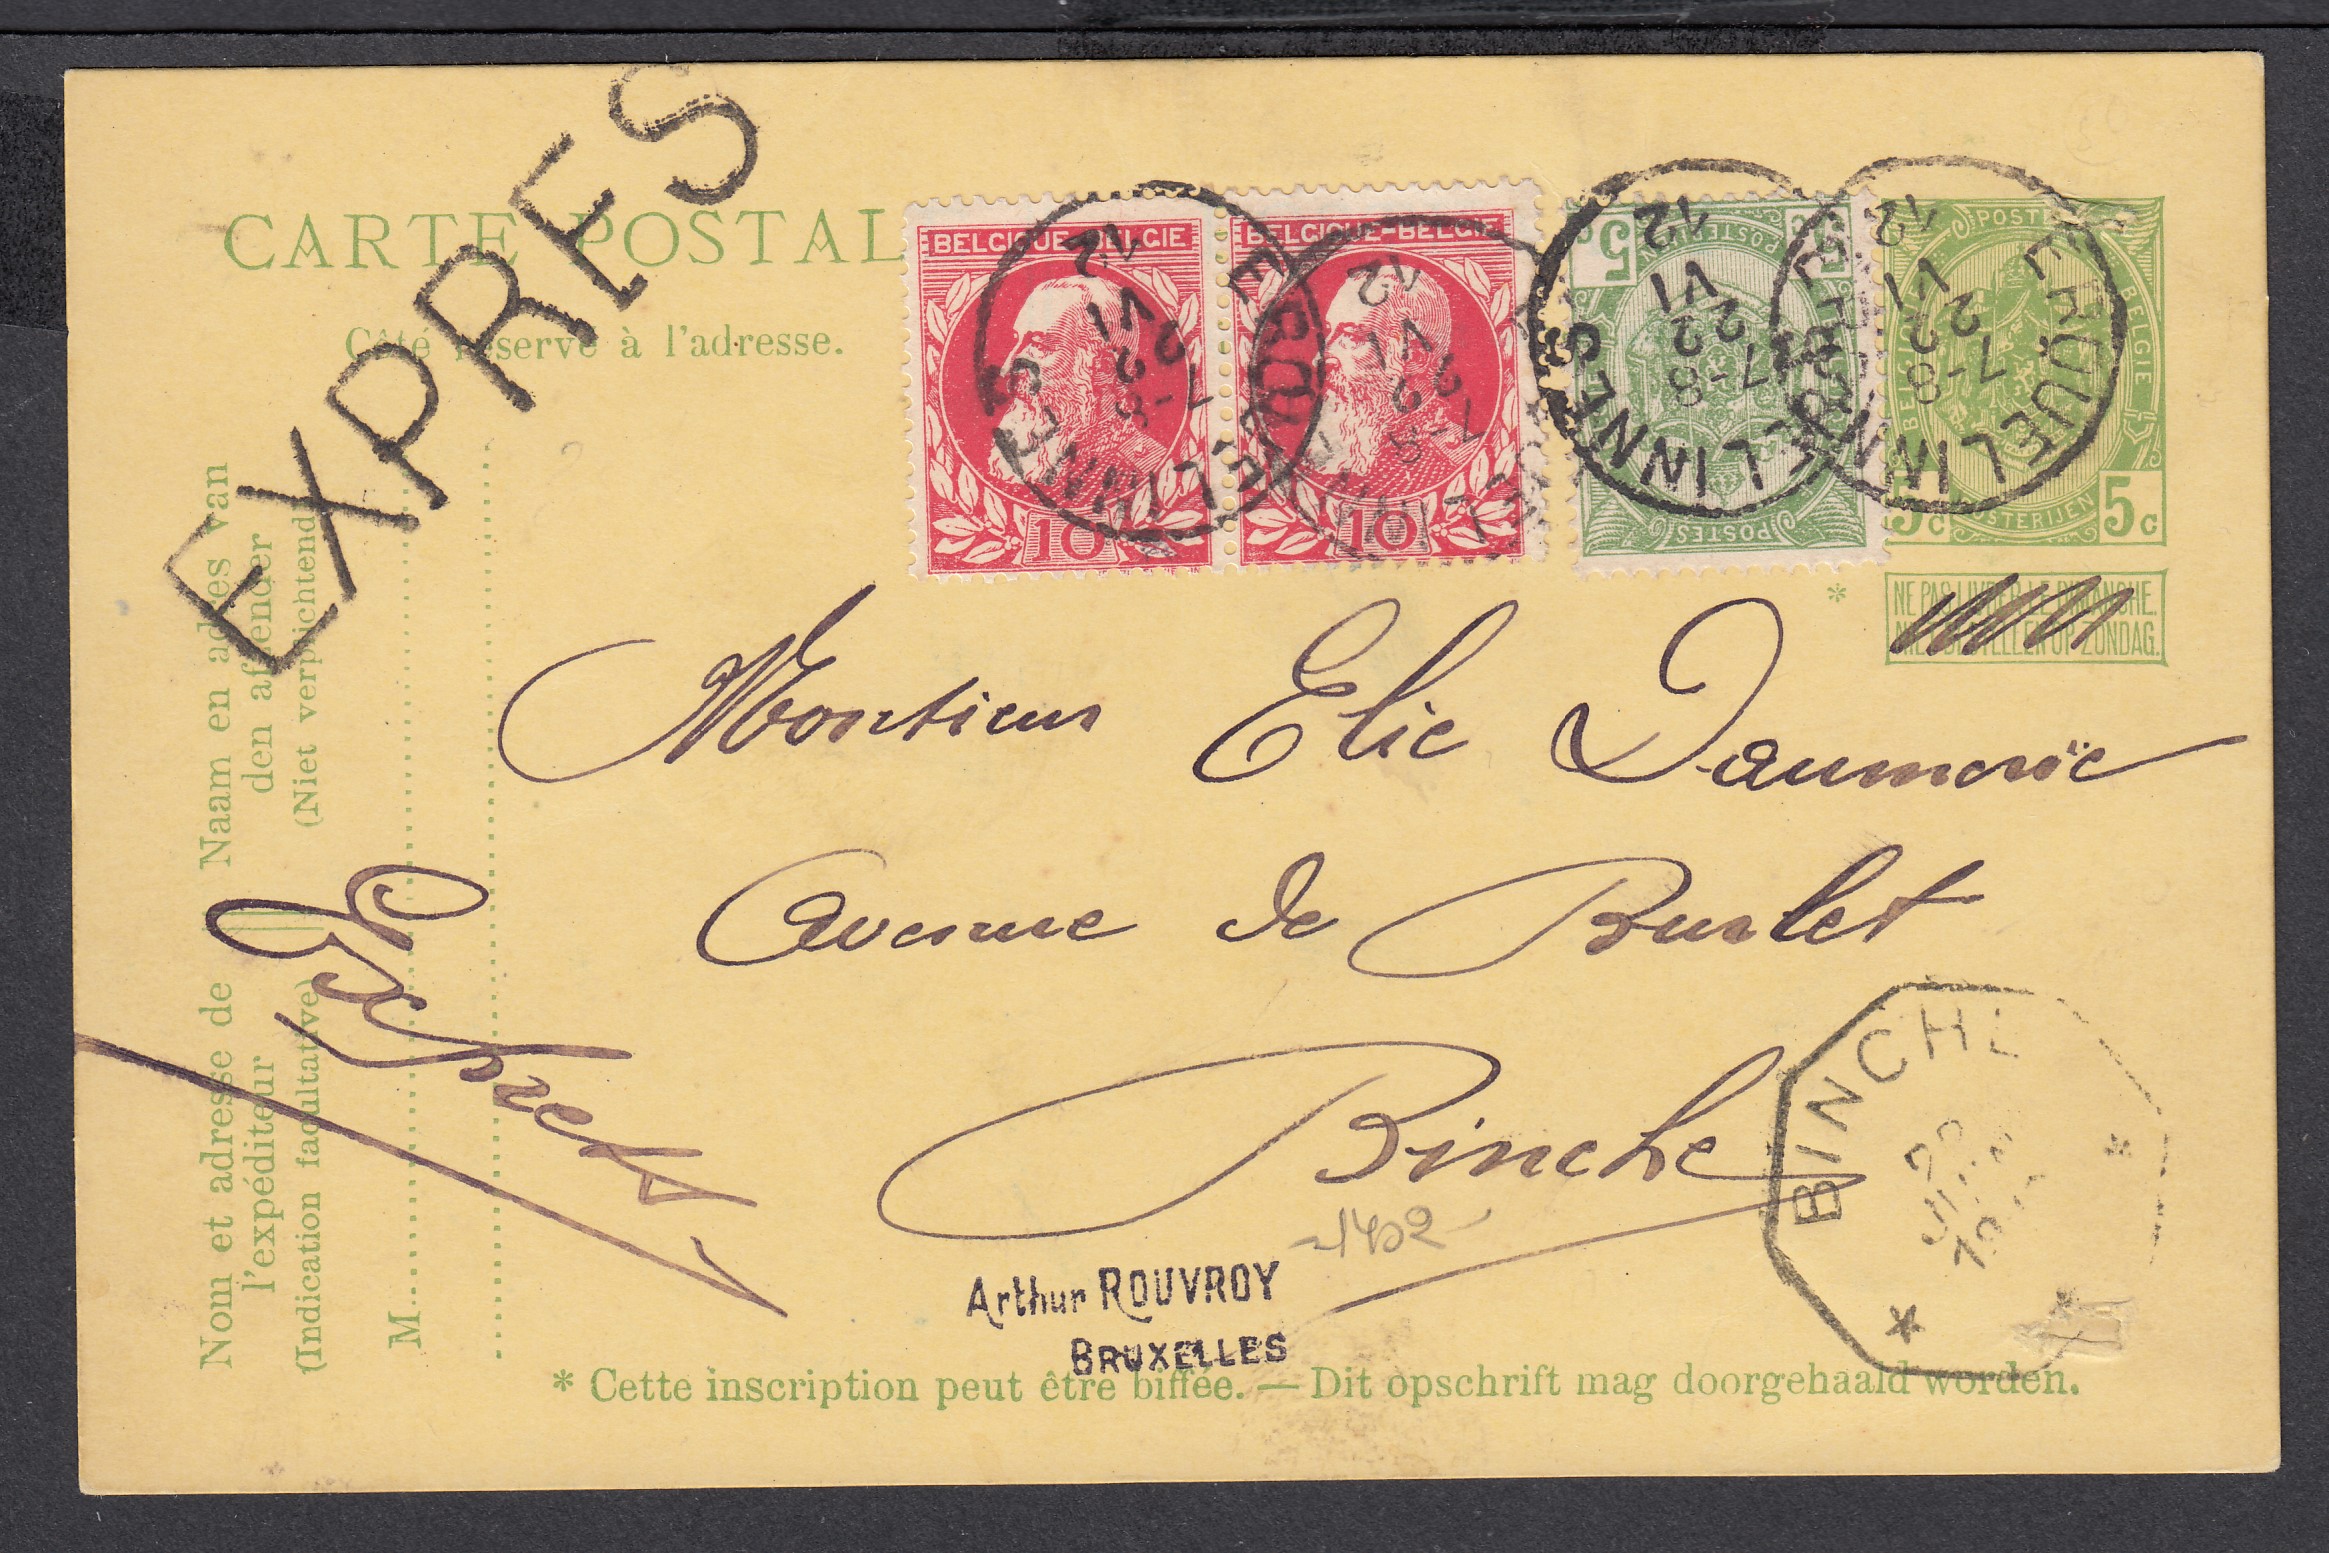 EXPRES
CARTE POSTAL
Côté réservé à l'adresse.
BELGIQUE-BELGIE
10
BELGIQUE-BELGIE
10
5
POSTERIJEN
POSTES
POSTERIJEN
BELGIE
5c
5c
ERQUELINNES
7-8
22
VI
12
ERQUELINNES
7-8
22
VI
12
ERQUELINNES
7-8
22
VI
12
ERQUELINNES
7-8
22
VI
12
* NE PAS LIVRER LE DIMANCHE.
NIET BESTELLEN OP ZONDAG.
Naam en adres van
den afzender
(Niet verplichtend)
Nom et adresse de
l'expéditeur
(Indication facultative)
M
Monsieur Elie Daumerie
Avenue de Burlet
Binche
1402
BINCHE
Arthur ROUVROY
BRUXELLES
* Cette inscription peut être biffée. — Dit opschrift mag doorgehaald worden.